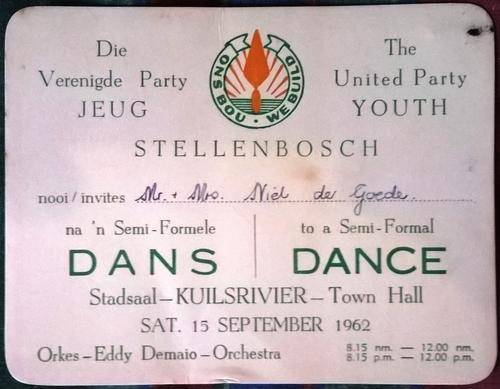 Die
Verenigde Party
JEUG
ONS BOU · WE BUILD
The
United Party
YOUTH
STELLENBOSCH
nooi / invites Mr. + Mrs. Niel de Goede.
na 'n Semi-Formele
DANS
to a Semi-Formal
DANCE
Stadsaal – KUILSRIVIER – Town Hall
SAT. 15 SEPTEMBER 1962
Orkes – Eddy Demaio – Orchestra
8.15 nm. — 12.00 nm.
8.15 p.m. — 12.00 p.m.